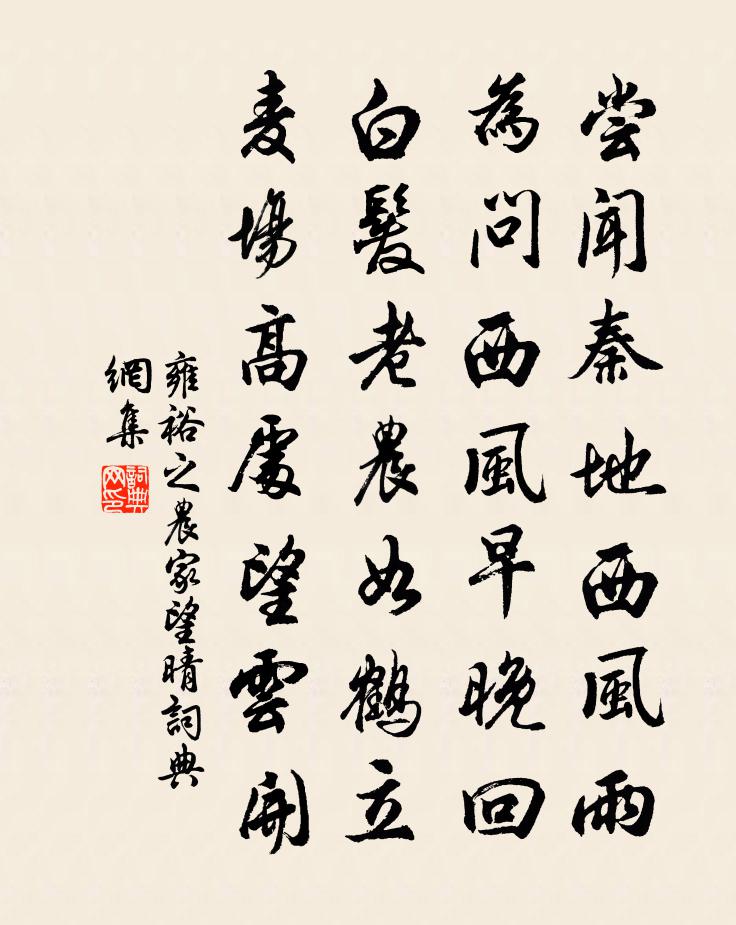 尝聞秦地西風雨
為問西風早晚回
白髮老農如鶴立
麦場高處望雲開
雍裕之農家望晴詞典
網集
詞典
网印